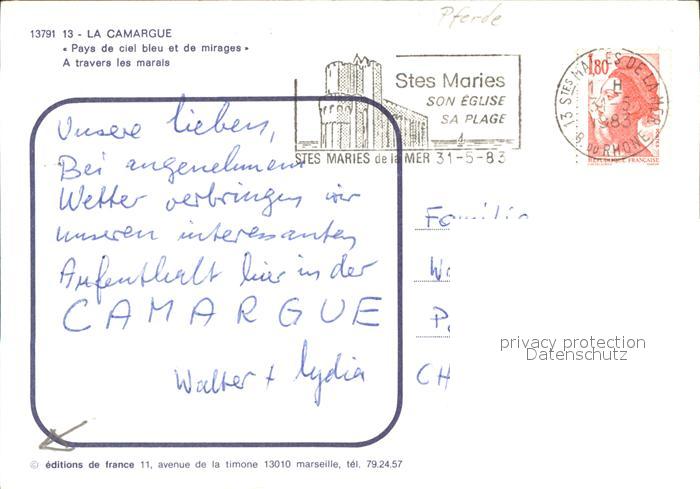 Pferde
13791 13 - LA CAMARGUE
« Pays de ciel bleu et de mirages »
A travers les marais
Stes Maries
SON ÉGLISE
SA PLAGE
STES MARIES de la MER 31-5-83
13 STES MARIES DE LA MER
B. DU RHONE
1,80
REPUBLIQUE FRANÇAISE
Unsere lieben,
Bei angenehmem
Wetter verbringen wir
unseren interessanten
Aufenthalt hier in der
CAMARGUE
Walter + Lydia
Familie
CH
privacy protection
Datenschutz
© éditions de france 11, avenue de la timone 13010 marseille, tél. 79.24.57